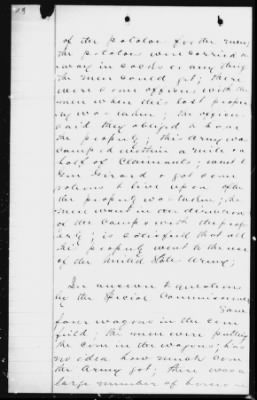 of the potatoes for the men;
the potatoes were carried a-
way in sacks or any thing
the men could get; there
were some officers with the
men when this last proper-
ty was taken; the officers
said they obliged to have
the property; this army was
camped within a mile or a
half of Claimants; went to
Gen Girard & got some
rations to live upon after
the property was taken; the
men went in the direction
of the camp with the prop-
erty; is satisfied that all
the property went to the use
of the United States Army;
In answer to questions
by the Special Commissioner
Saw
four wagons in the corn
field; the men were putting
the corn in the wagons; has
no idea how much corn
the Army got; there was a
large number of horses